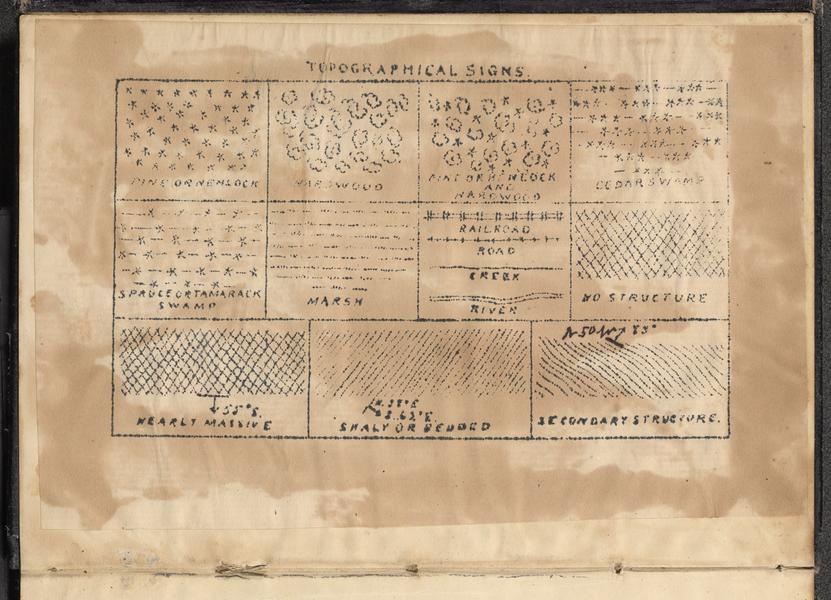 TOPOGRAPHICAL SIGNS.
PINE OR HEMLOCK
HARDWOOD
PINE OR HEMLOCK
AND
HARDWOOD
CEDAR SWAMP
SPRUCE OR TAMARACK
SWAMP
MARSH
RAILROAD
ROAD
CREEK
RIVER
NO STRUCTURE
55° S.
NEARLY MASSIVE
SHALY OR BEDDED
N 50 W 85°
SECONDARY STRUCTURE.